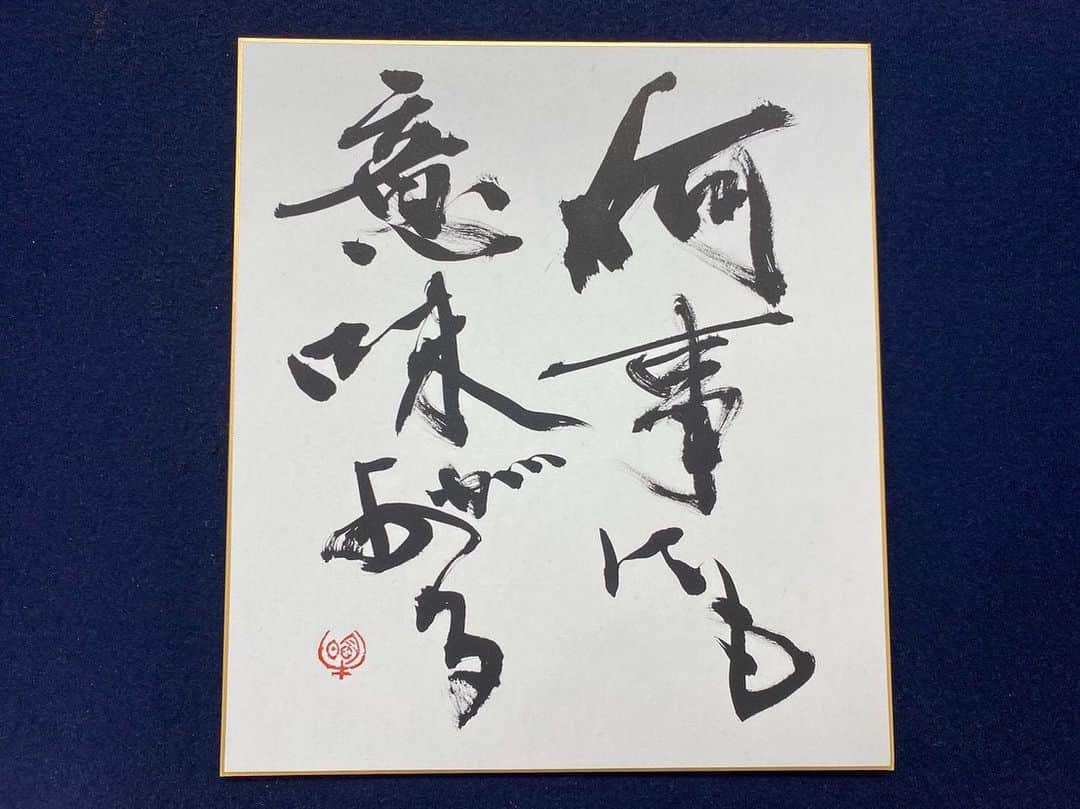 何事にも
意味がある